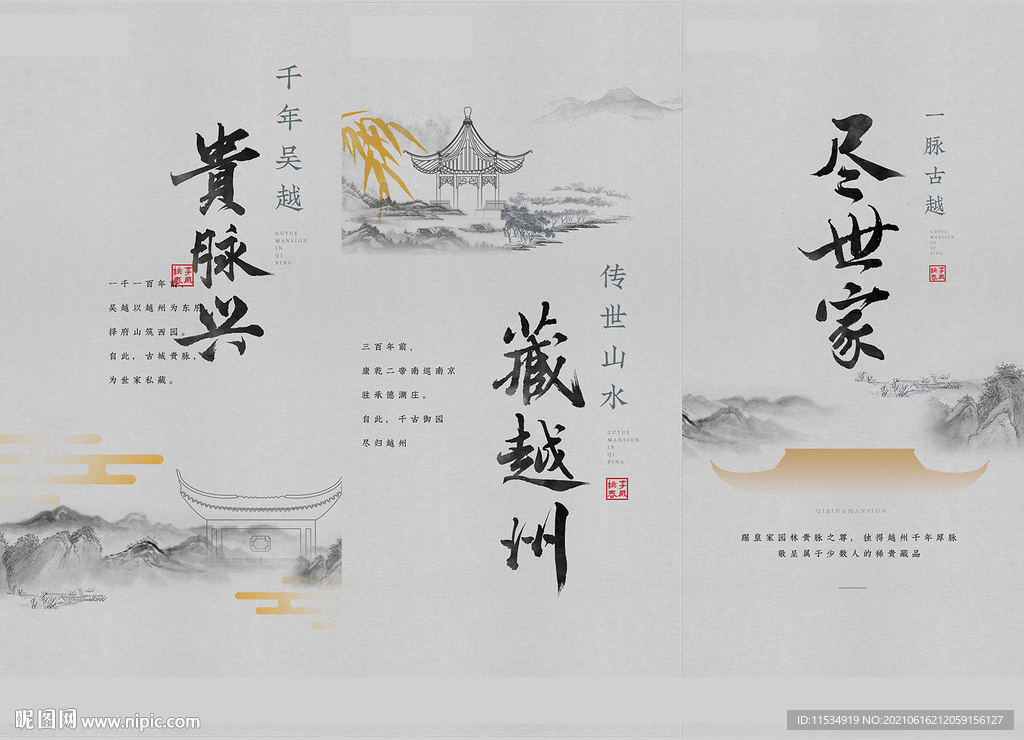 千年吴越
貴脉兴
GUYUE
MANSION
IN
QI
BING
一千一百年前，
吴越以越州为东府，
择府山筑西园。
自此，古城贵脉，
为世家私藏。
传世山水
藏越州
GUYUE
MANSION
IN
QI
BING
三百年前，
康乾二帝南巡南京
驻承德湖庄。
自此，千古御园
尽归越州
一脉古越
尽世家
GUYUE
MANSION
IN
QI
BING
QIBINGMANSION
踞皇家园林贵脉之尊，独得越州千年厚脉
敬呈属于少数人的稀贵藏品
昵图网 www.nipic.com
ID:11534919 NO:20210616212059156127